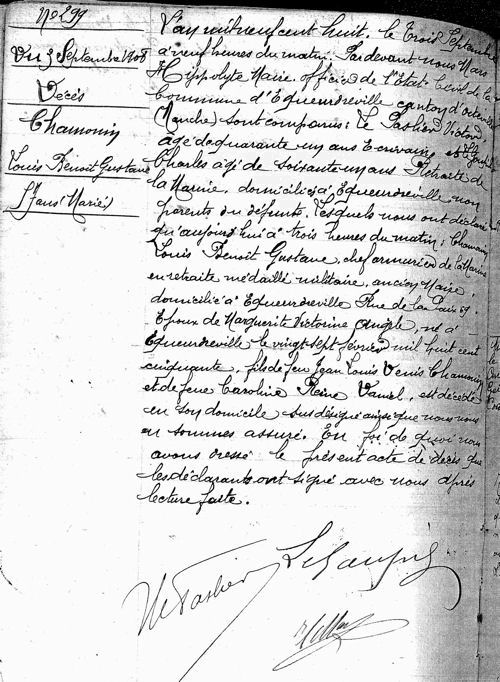 No 299
Du 3 Septembre 1908
Décès
Chamonin
Louis Benoit Gustave
58 ans (Marié)
L'an mil neuf cent huit, le Trois Septembre
à neuf heures du matin, Par devant nous Mars
Hippolyte Maire officier de l'Etat Civil de la
commune d'Equeurdreville canton d'octeville
(Manche) sont comparus: Le Pastier Victor
agé de quarante un ans Ecrivain, et
Charles agé de soixante un ans Retraité de
la Marine, domiciliés à Equeurdreville non
parents du défunt. Lesquels nous ont déclaré
qu'aujourd'hui à trois heures du matin; Chamonin
Louis Benoit Gustave, chef armurier de la Marine
en retraite médaillé militaire, ancien Maire,
domicilié à Equeurdreville Rue de la Paix
Epoux de Marguerite Victorine Angèle, né à
Equeurdreville le vingt sept février mil huit cent
cinquante, fils de feu Jean Louis Denis Chamonin
et de feue Caroline Reine Vautel, est décédé
en son domicile sus désigné ainsi que nous nous
en sommes assuré. En foi de quoi nous
avons dressé le présent acte de décès que
les déclarants ont signé avec nous après
lecture faite.